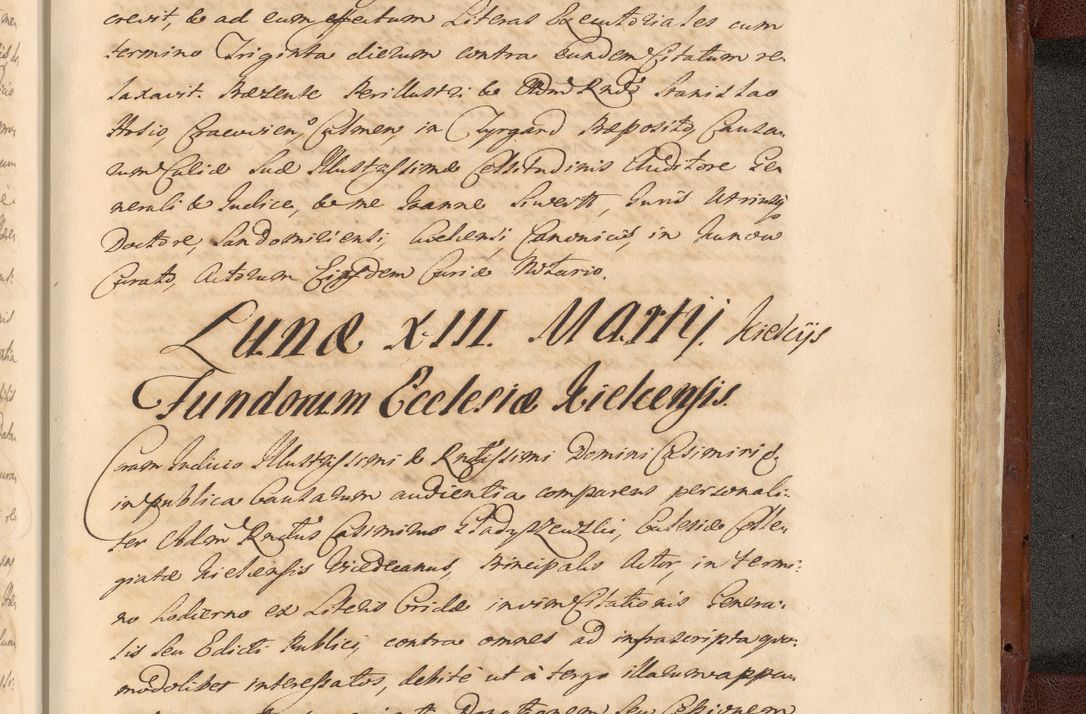 crevit, & ad eum effectum Literas Executoriales cum
termino Triginta dierum contra eundem Citatum re-
laxavit. Præsente Perillustri & Adm Rndo Stanislao
Hosio, Cracovien, Culmen, in Czyrzand Præposito, Causa-
rum Curiæ Suæ Illustrissimæ Celsitudinis Auditore Ge-
nerali & Iudice, & me Ioanne Siwertt, Iuris Utriusq
Doctore, Sandomiriensi, Canonico, in
Curato, Actorum Ejusdem Curiæ Notario.
Lunæ XIII. Martij. Kielcijs
Fundorum Ecclesiæ Kielcensis.
Coram Iudicio Illustrissimi & Rndissimi Domini Casimiri &
in publica Causarum audientia comparens personali-
ter Adm Rndus Casimirus Gładyszewski, Ecclesiæ Colle-
giatæ Kielcensis Vicedecanus, Principalis Actor, in termi-
no hodierno ex Literis Cridæ in vim Citationis Genera-
lis seu Edicti Publici, contra omnes ad infrascripta quo-
modolibet interessatos, debitè ut à tergo illarum appa-
Donationem seu Cessionem